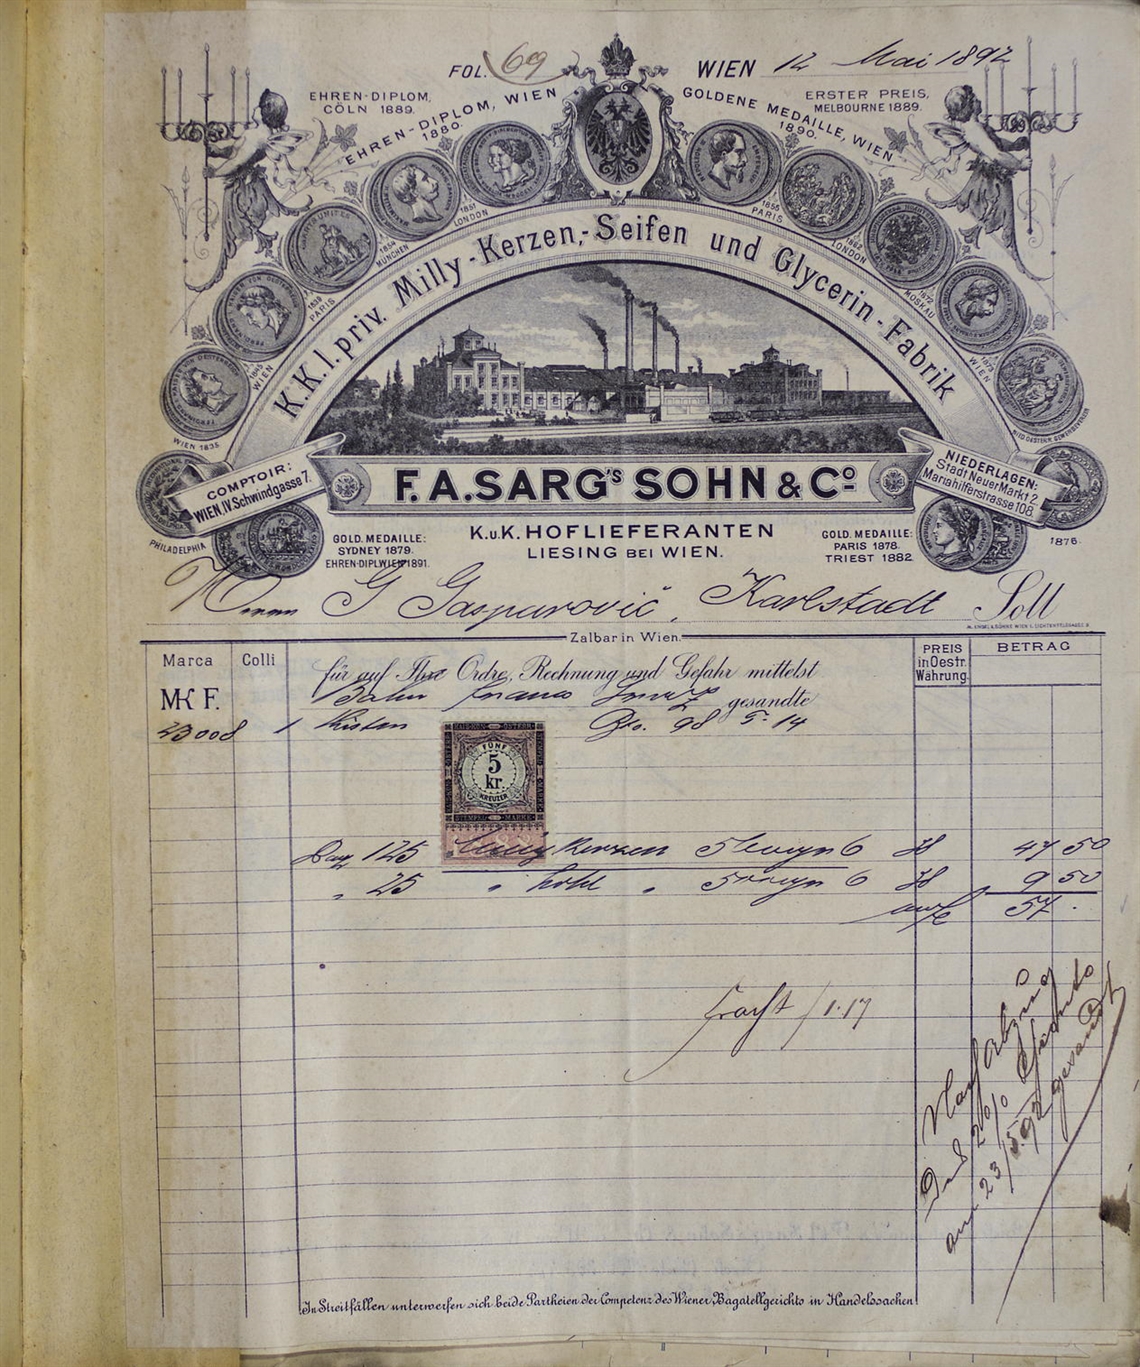 FOL. 69
WIEN 12 Mai 1892
EHREN-DIPLOM, CÖLN 1889.
EHREN-DIPLOM, WIEN 1880.
GOLDENE MEDAILLE, WIEN 1890.
ERSTER PREIS, MELBOURNE 1889.
WIEN 1835.
1845 WIEN
1839 PARIS
1854 MÜNCHEN
1851 LONDON
1855 PARIS
1862 LONDON
1872 MOSKAU
1873 WIEN
K.K.l.priv. Milly-Kerzen,-Seifen und Glycerin-Fabrik
COMPTOIR:
WIEN, IV. Schwindgasse 7.
F. A. SARG's SOHN & Co
NIEDERLAGEN:
Stadt Neuer Markt 2,
Mariahilferstrasse 108.
PHILADELPHIA
1876.
GOLD. MEDAILLE:
SYDNEY 1879.
EHREN-DIPL. WIEN 1891.
K.u.K. HOFLIEFERANTEN
LIESING BEI WIEN.
GOLD. MEDAILLE:
PARIS 1878.
TRIEST 1882.
Herrn G Gasparović, Karlstadt Soll
Zalbar in Wien.
Marca Colli PREIS in Oestr. Währung. BETRAG
für auf Ihre Ordre, Rechnung und Gefahr mittelst
MK F. Bahn franco gesandte
43008 1 Kisten Bto. 98 T. 14
5 kr.
FÜNF KREUZER
STEMPEL MARKE
125 Kerzen 6 38 47 50
" 25 " hohl " 6 38 9 50
57 .
Fracht f 1.17
Nach Abzug
2% Sconto
am 23/5.92 gesandt
In Streitfällen unterwerfen sich beide Partheien der Competenz des Wiener Bagatellgerichts in Handelssachen